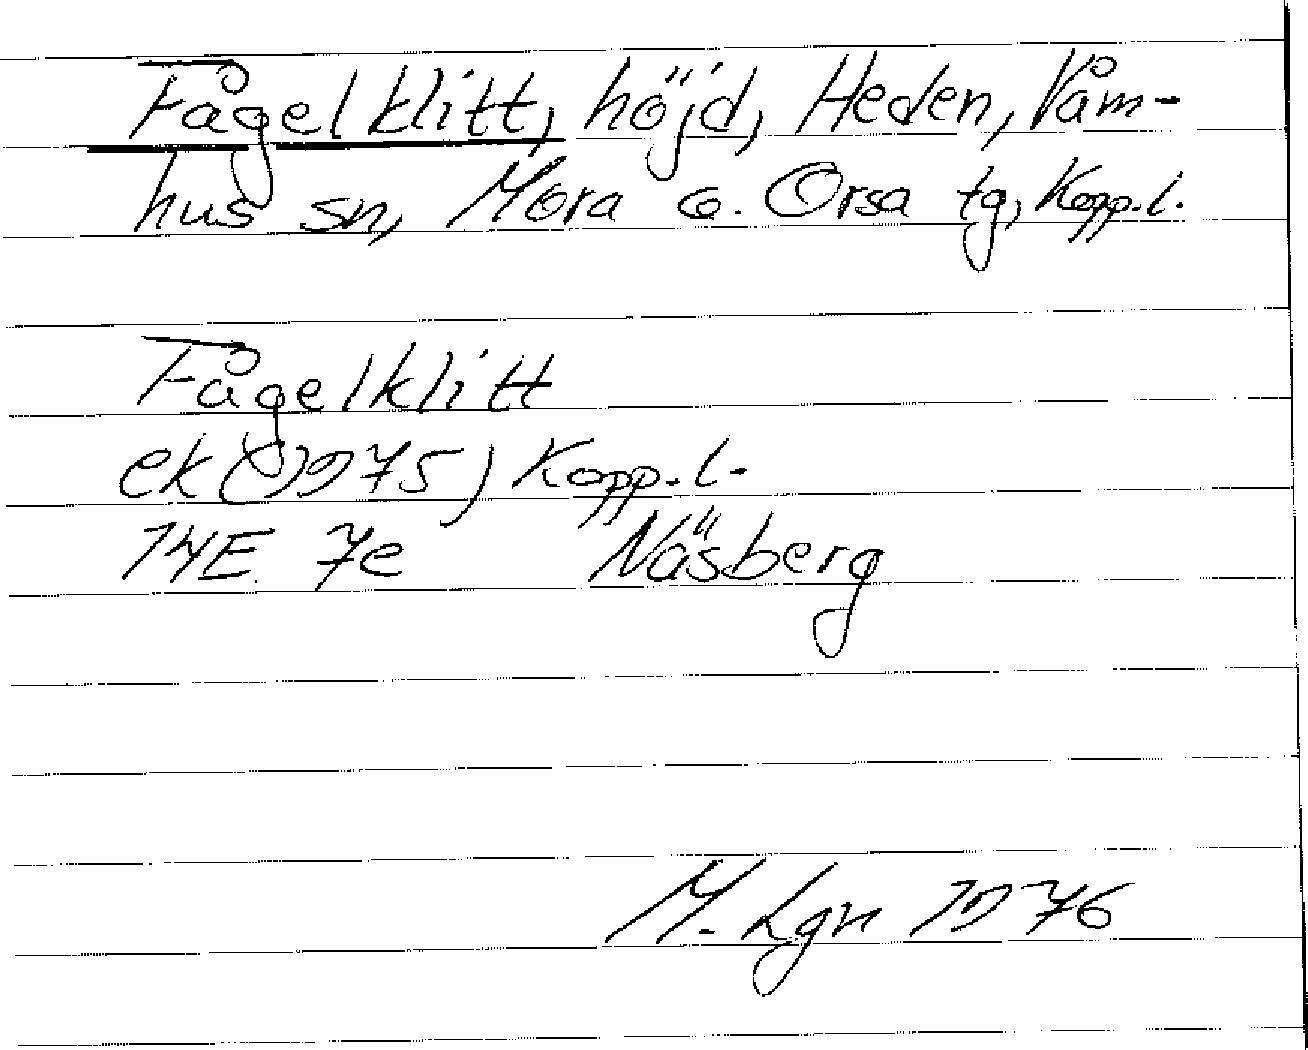 Fågelklitt, höjd, Heden, Våm-
hus sn, Mora o. Orsa tg, Kopp.l.
Fågelklitt
ek (1975) Kopp.l.
14E 7e Näsberg
M. Lgn 1976